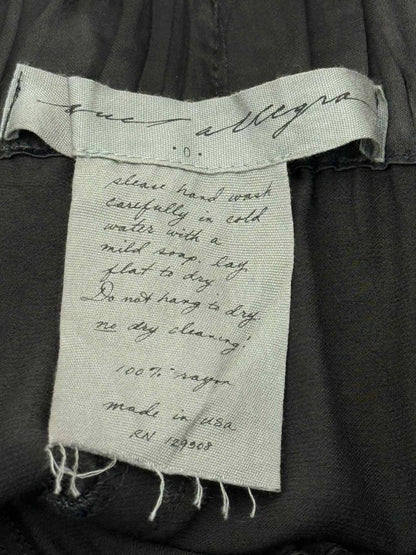 allegra
· 0 ·
please hand wash
carefully in cold
water with a
mild soap. lay
flat to dry.
Do not hang to dry
no dry cleaning!
100% rayon
made in USA
RN 129308